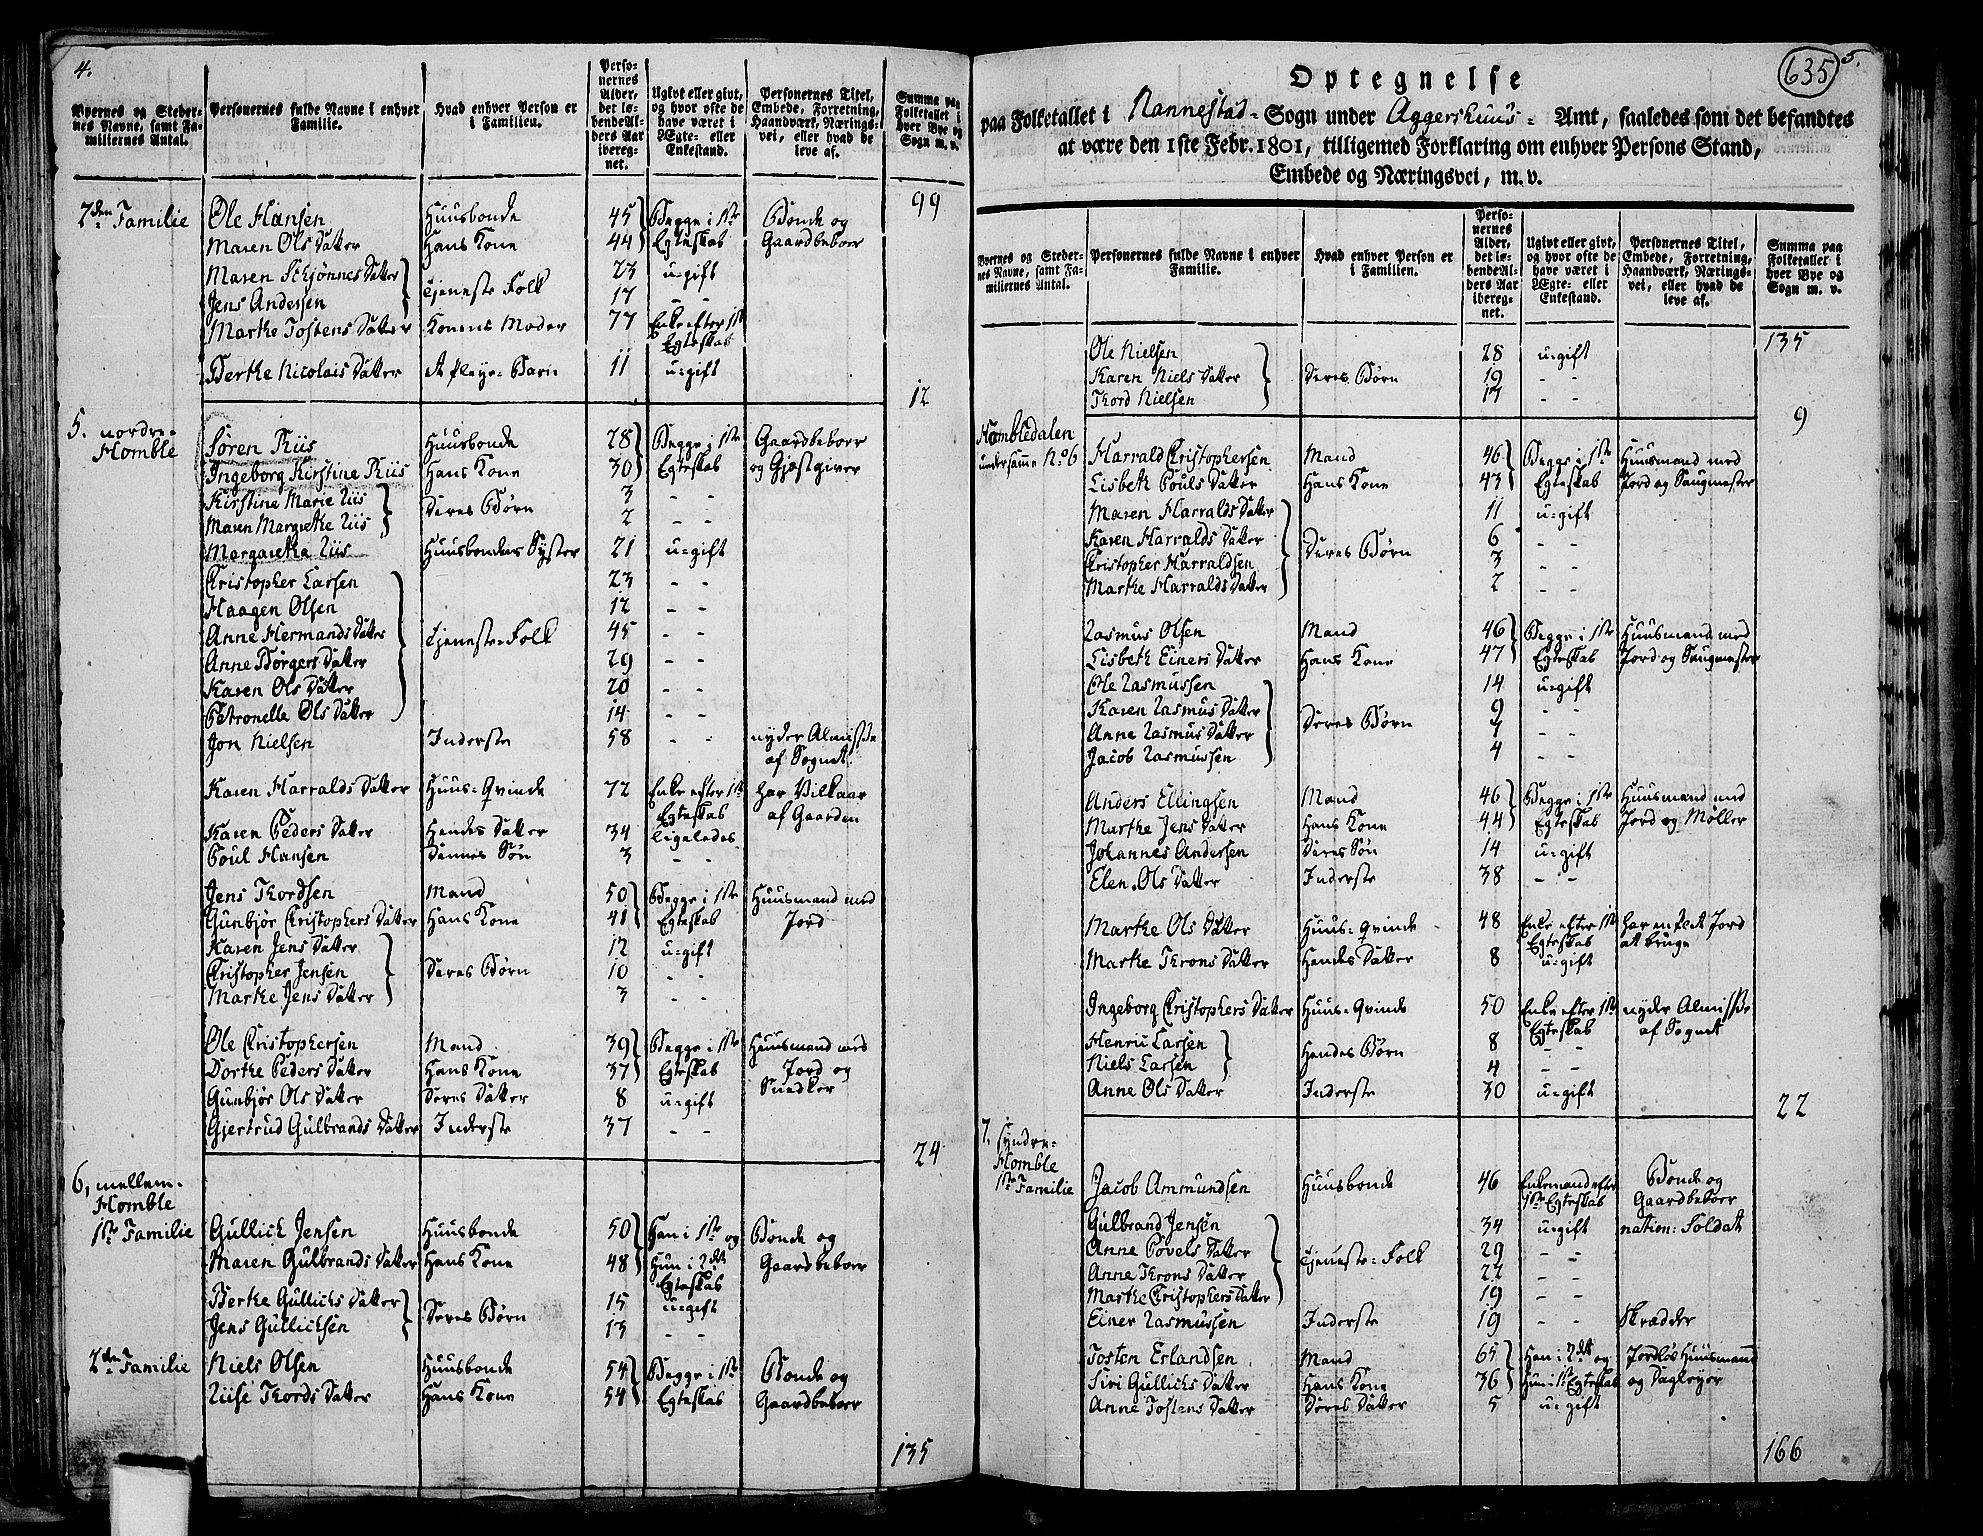 4.
Byernes og Steder-
nes Navne, samt Fa-
miliernes Antal.
Personernes fulde Navne i enhver
Familie.
Hvad enhver Person er
i Familien.
Perso-
nernes
Alder,
det lø-
bende Al-
ders Aar
ibereg-
net.
Ugivt eller givt,
og hvor ofte de
have været i
Ægte- eller
Enkestand.
Personernes Titel,
Embede, Forretning,
Haandværk, Nærings-
vei, eller hvad de
leve af.
Summa paa
Folketallet i
hver Bye og
Sogn m. v.
99
2den Familie Ole Hansen Huusbonde 45 Begge i 1ste Bonde og
Maren Ols Datter Hans Kone 44 Egteskab Gaardbeboer
Maren Skjønnes Datter 23 u-gift
Jens Andersen Tjeneste Folk 17 - -
Marthe Tostens Datter Konens Moder 77 Enke efter 1ste
Egteskab
Berthe Nicolais Datter Et Pleye-Barn 11 u-gift
12
5. nordre- Søren Riis Huusbonde 28 Begge i 1ste Gaardbeboer
Homble Ingeborg Kirstine Riis Hans Kone 30 Egteskab og Gjæstgiver
Kirstine Marie Riis 3 - -
Maren Margrethe Riis Deres Børn 2 - -
Margaretha Riis Huusbondens Syster 21 u-gift
Christopher Larsen 23 - -
Haagen Olsen 12 - -
Anne Hermands Datter Tjeneste-Folk 45 - -
Anne Børgers Datter 29 - -
Karen Ols Datter 20 - -
Petronelle Ols Datter 14 - -
Jon Nielsen Inderste 58 - - nyder Almisse
af Sognet
Karen Harralds Datter Huus-Qvinde 72 Enke efter 1ste har Vilkaar
Egteskab af Gaarden
Karen Peders Datter Hendes Datter 34 ligeledes
Poul Hansen Dennes Søn 3 - -
Jens Thordsen Mand 50 Begge i 1ste Huusmand med
Gunbjør Christophers Datter Hans Kone 41 Egteskab Jord
Karen Jens Datter 12 u-gift
Christopher Jensen Deres Børn 10 - -
Marthe Jens Datter 3 - -
Ole Christophersen Mand 39 Begge i 1ste Huusmand med
Dorthe Peders Datter Hans Kone 37 Egteskab Jord og
Gunbjør Ols Datter Deres Datter 8 u-gift Snedker
Gjertrud Gulbrands Datter Inderste 37 - -
24
6, mellem-
Homble
1ste Familie Gullich Jensen Huusbonde 50 Han i 1ste og Bonde og
Maren Gulbrands Datter Hans Kone 48 Hun i 2det Gaardbeboer
Egteskab
Berthe Gullichs Datter 15 u-gift
Jens Gullichsen Deres Børn 13 - -
2den Familie Niels Olsen Huusbonde 54 Begge i 1ste Bonde og
Riise Thords Datter Hans Kone 54 Egteskab Gaardbeboer
135
635
5.
Optegnelse
paa Folketallet i Nannestad- Sogn under Aggershuus- Amt, saaledes som det befandtes
at være den 1ste Febr. 1801, tilligemed Forklaring om enhver Persons Stand,
Embede og Næringsvei, m. v.
Byernes og Steder-
nes Navne, samt Fa-
miliernes Antal.
Personernes fulde Navne i enhver
Familie.
Hvad enhver Person er
i Familien.
Perso-
nernes
Alder,
det lø-
bende Al-
ders Aar
ibereg-
net.
Ugivt eller givt,
og hvor ofte de
have været i
Ægte- eller
Enkestand.
Personernes Titel,
Embede, Forretning,
Haandværk, Nærings-
vei, eller hvad de
leve af.
Summa paa
Folketallet i
hver Bye og
Sogn m. v.
135
Ole Nielsen 28 u-gift
Karen Niels Datter Deres Børn 19 - -
Thord Nielsen 17 - -
9
Hombledalen
under samme No 6 Harrald Christophersen Mand 46 Begge i 1ste Huusmand med
Lisbeth Pouls Datter Hans Kone 43 Egteskab Jord og Saugmester
Maren Harralds Datter 11 u-gift
Karen Harralds Datter 6 - -
Christopher Harraldsen Deres Børn 3 - -
Marthe Harralds Datter 2 - -
Rasmus Olsen Mand 46 Begge i 1ste Huusmand med
Lisbeth Einers Datter Hans Kone 47 Egteskab Jord og Saugmester
Ole Rasmussen 14 u-gift
Karen Rasmus Datter 9 - -
Anne Rasmus Datter Deres Børn 7 - -
Jacob Rasmussen 4 - -
Anders Ellingsen Mand 46 Begge i 1ste Huusmand med
Marthe Jens Datter Hans Kone 44 Egteskab Jord og Møller
Johannes Andersen Deres Søn 14 u-gift
Elen Ols Datter Inderste 38 - -
Marthe Ols Datter Huus-Qvinde 48 Enke efter 1ste har en Plet Jord
Egteskab at bruge
Marthe Throns Datter Hendes Datter 8 u-gift
Ingeborg Christophers Datter Huus-Qvinde 50 Enke efter 1ste nyder Almisse
Egteskab af Sognet
Henric Larsen 8 - -
Niels Larsen Hendes Børn 4 - -
Anne Ols Datter Inderste 30 u-gift
22
7. Syndre-
Homble
1ste Familie Jacob Ammundsen Huusbonde 46 Enkemand efter Bonde og
1ste Egteskab Gaardbeboer
Gulbrand Jensen 34 u-gift nation: Soldat
Anne Povels Datter 29 - -
Anne Throns Datter Tjeneste-Folk 22 - -
Marthe Christophers Datter 19 - -
Einer Rasmussen Inderste 19 - - Skrædder
Tosten Erlandsen Mand 65 Han i 2det og Jordløs Huusmand
Siri Gullichs Datter Hans Kone 36 Hun i 1ste Egteskab og Dagleyer
Anne Tostens Datter Deres Datter 5 u-gift
166